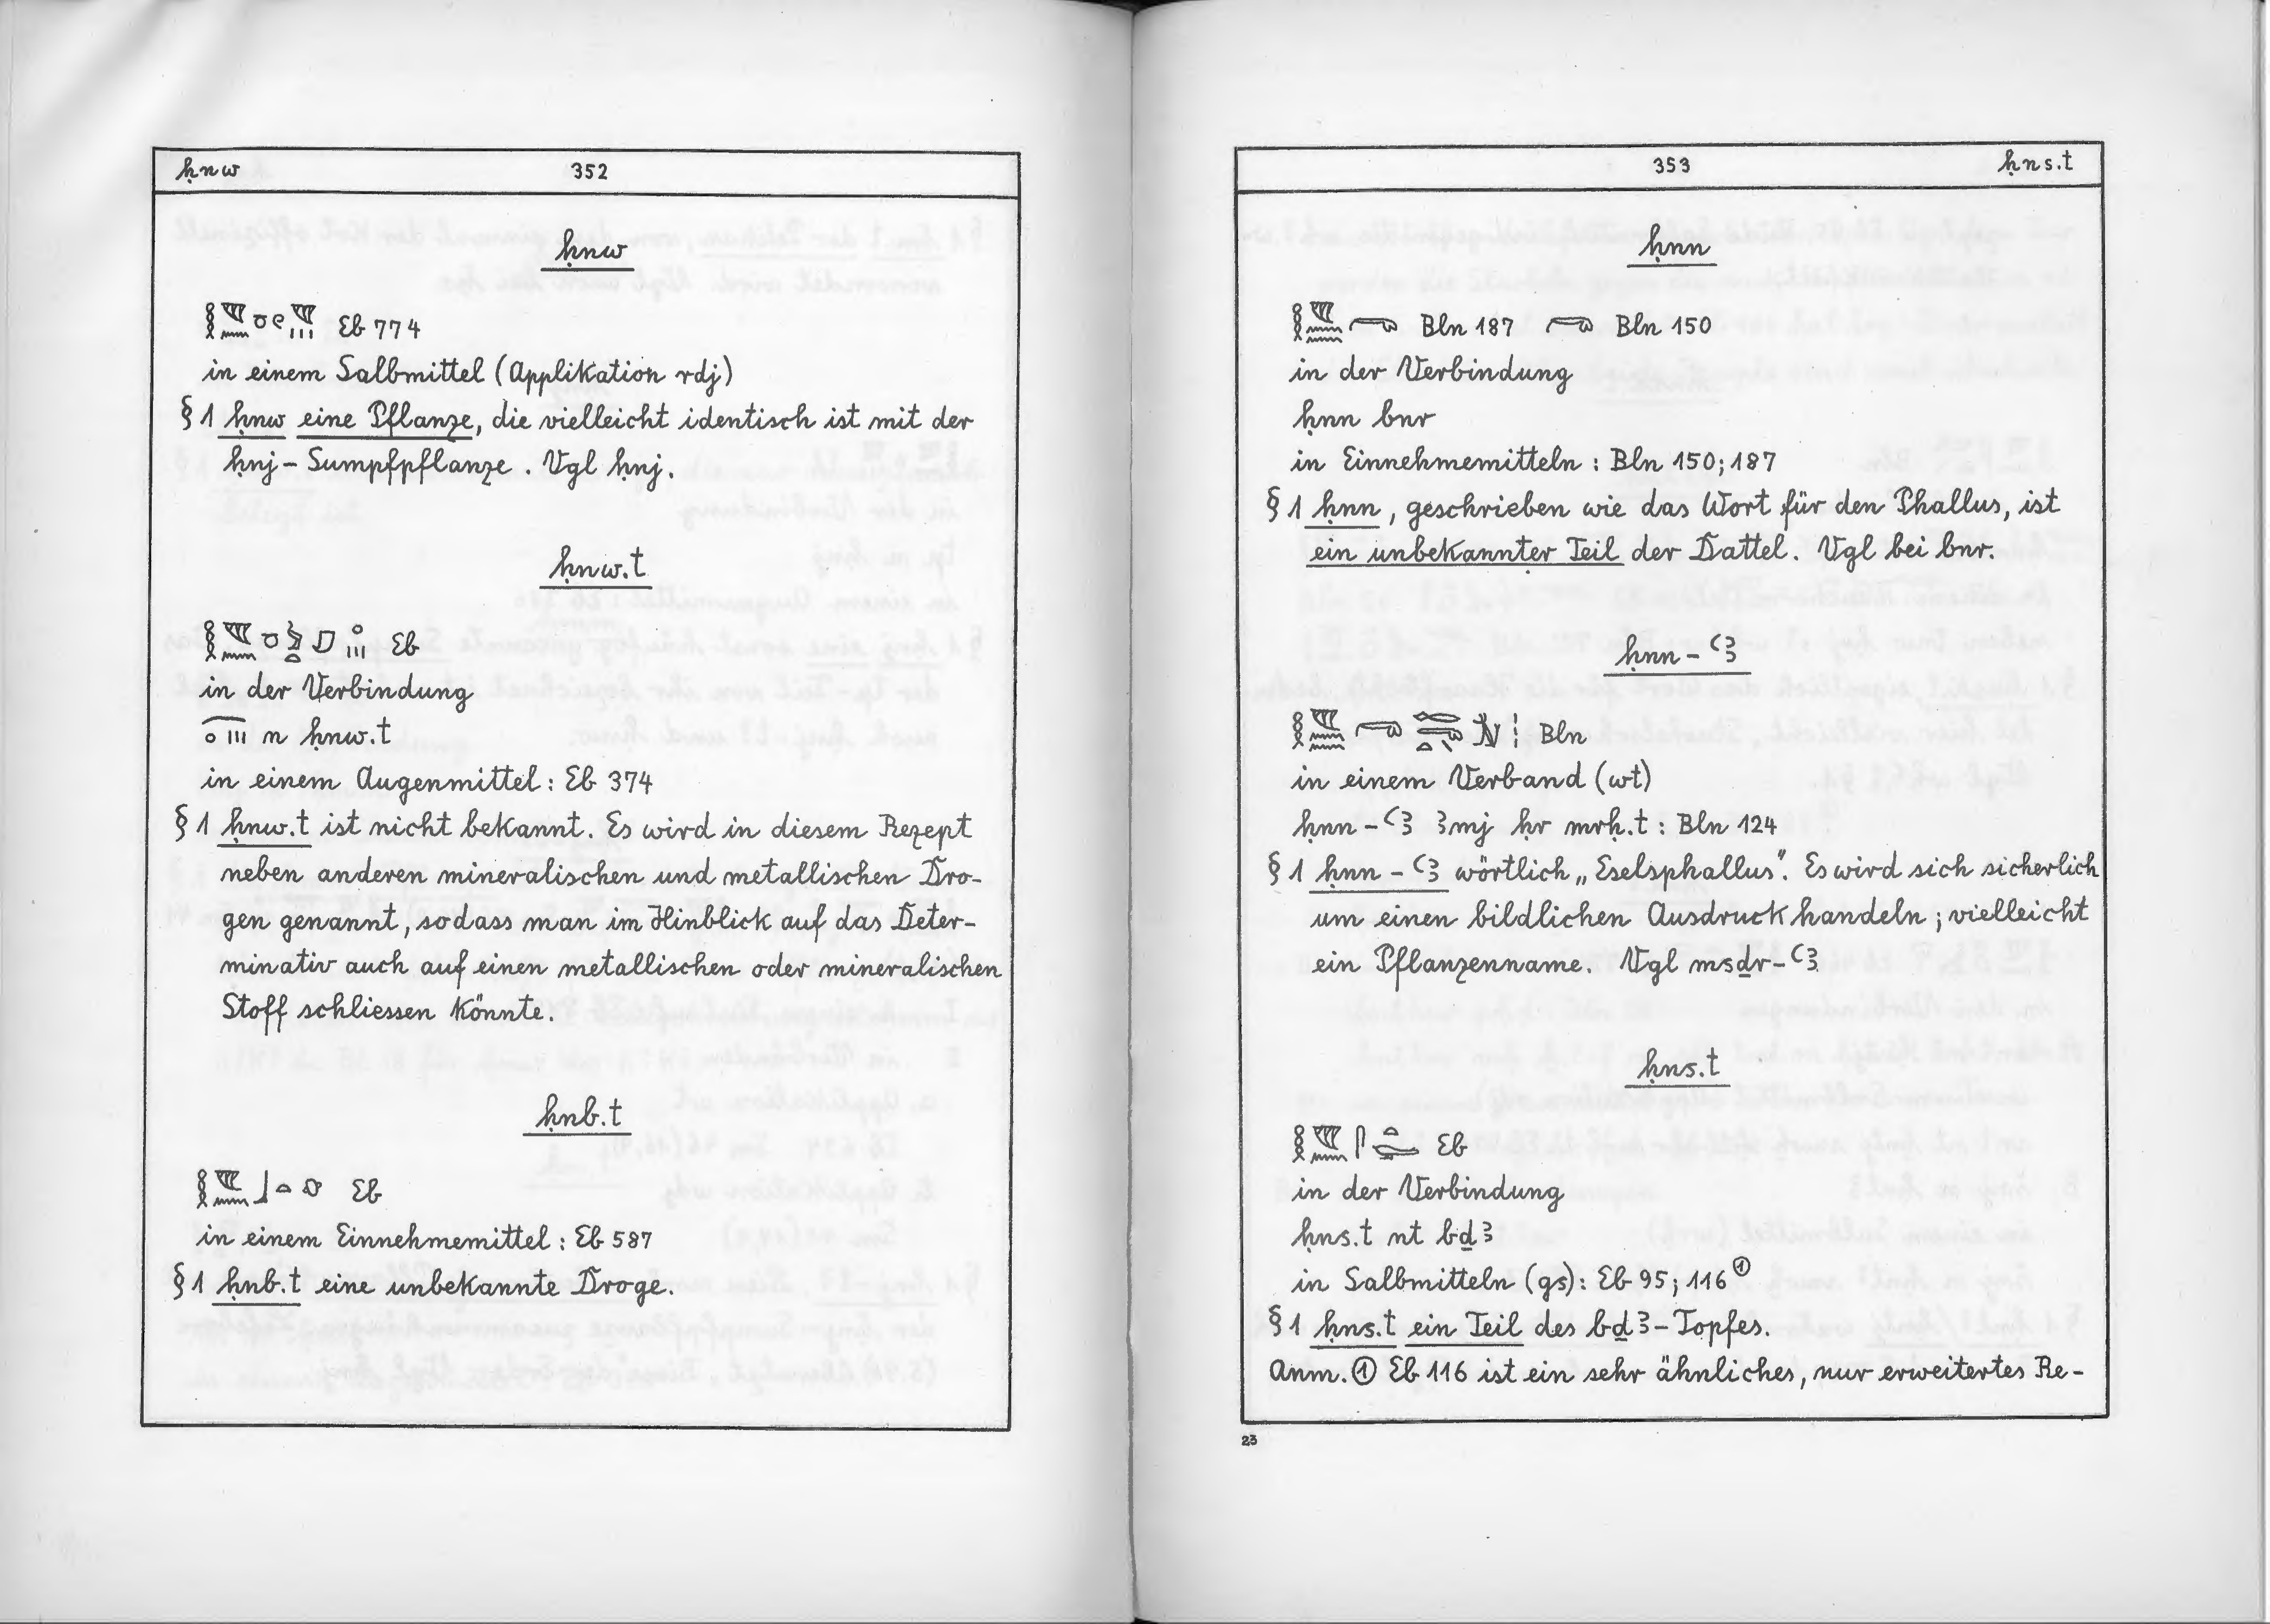 ḥnw 352
ḥnw
Eb 774
in einem Salbmittel (Applikation rdj)
§ 1 ḥnw eine Pflanze, die vielleicht identisch ist mit der
ḥnj - Sumpfpflanze. Vgl ḥnj.
ḥnw.t
Eb
in der Verbindung
n ḥnw.t
in einem Augenmittel: Eb 374
§ 1 ḥnw.t ist nicht bekannt. Es wird in diesem Rezept
neben anderen mineralischen und metallischen Dro-
gen genannt, sodass man im Hinblick auf das Deter-
minativ auch auf einen metallischen oder mineralischen
Stoff schliessen könnte.
ḥnb.t
Eb
in einem Einnehmemittel: Eb 587
§ 1 ḥnb.t eine unbekannte Droge.
353 ḥns.t
ḥnn
Bln 187 Bln 150
in der Verbindung
ḥnn bnr
in Einnehmemitteln: Bln 150; 187
§ 1 ḥnn, geschrieben wie das Wort für den Phallus, ist
ein unbekannter Teil der Dattel. Vgl bei bnr.
ḥnn - ꜥꜣ
Bln
in einem Verband (wt)
ḥnn - ꜥꜣ ꜣmj ḥr mrḥ.t: Bln 124
§ 1 ḥnn - ꜥꜣ wörtlich „Eselsphallus". Es wird sich sicherlich
um einen bildlichen Ausdruck handeln; vielleicht
ein Pflanzenname. Vgl msḏr-ꜥꜣ
ḥns.t
Eb
in der Verbindung
ḥns.t nt bḏꜣ
in Salbmitteln (gs): Eb 95; 116 ①
§ 1 ḥns.t ein Teil des bḏꜣ-Topfes.
Anm. ① Eb 116 ist ein sehr ähnliches, nur erweitertes Re-
23